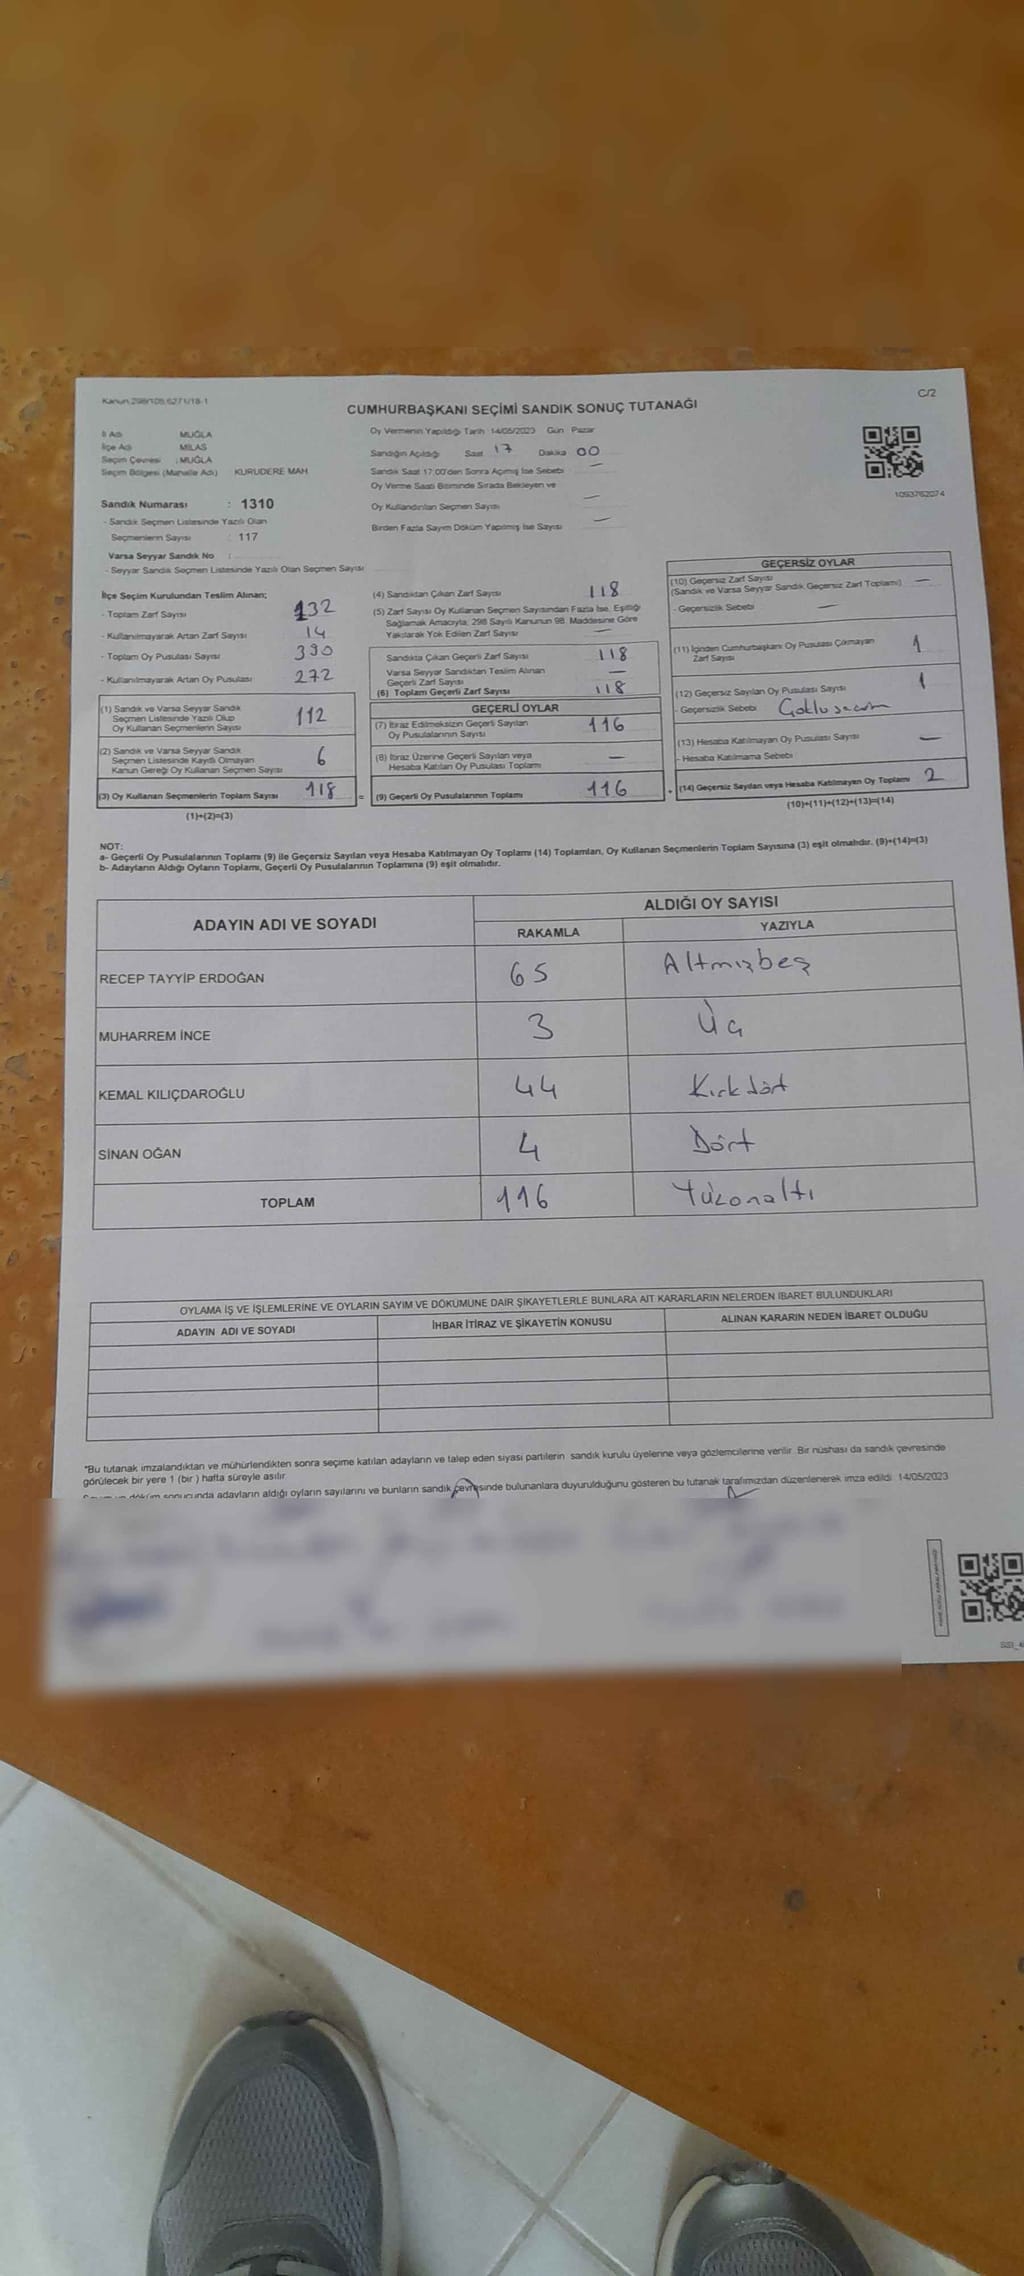 Kanun:298/105;6271/18-1
C/2
CUMHURBAŞKANI SEÇİMİ SANDIK SONUÇ TUTANAĞI
İl Adı MUĞLA
İlçe Adı MİLAS
Seçim Çevresi : MUĞLA
Seçim Bölgesi (Mahalle Adı) KURUDERE MAH
Sandık Numarası : 1310
- Sandık Seçmen Listesinde Yazılı Olan
Seçmenlerin Sayısı : 117
Varsa Seyyar Sandık No :
- Seyyar Sandık Seçmen Listesinde Yazılı Olan Seçmen Sayısı
Oy Vermenin Yapıldığı Tarih 14/05/2023 Gün Pazar
Sandığın Açıldığı Saat 17 Dakika 00
Sandık Saat 17:00'den Sonra Açılmış İse Sebebi —
Oy Verme Saati Bitiminde Sırada Bekleyen ve
Oy Kullandırılan Seçmen Sayısı —
Birden Fazla Sayım Döküm Yapılmış İse Sayısı —
1093762074
İlçe Seçim Kurulundan Teslim Alınan;
- Toplam Zarf Sayısı 132
- Kullanılmayarak Artan Zarf Sayısı 14
- Toplam Oy Pusulası Sayısı 390
- Kullanılmayarak Artan Oy Pusulası 272
(1) Sandık ve Varsa Seyyar Sandık
Seçmen Listesinde Yazılı Olup
Oy Kullanan Seçmenlerin Sayısı 112
(2) Sandık ve Varsa Seyyar Sandık
Seçmen Listesinde Kayıtlı Olmayan
Kanun Gereği Oy Kullanan Seçmen Sayısı 6
(3) Oy Kullanan Seçmenlerin Toplam Sayısı 118
(1)+(2)=(3)
(4) Sandıktan Çıkan Zarf Sayısı 118
(5) Zarf Sayısı Oy Kullanan Seçmen Sayısından Fazla İse, Eşitliği
Sağlamak Amacıyla, 298 Sayılı Kanunun 98. Maddesine Göre
Yakılarak Yok Edilen Zarf Sayısı —
Sandıkta Çıkan Geçerli Zarf Sayısı 118
Varsa Seyyar Sandıktan Teslim Alınan
Geçerli Zarf Sayısı —
(6) Toplam Geçerli Zarf Sayısı 118
GEÇERLİ OYLAR
(7) İtiraz Edilmeksizin Geçerli Sayılan
Oy Pusulalarının Sayısı 116
(8) İtiraz Üzerine Geçerli Sayılan veya
Hesaba Katılan Oy Pusulası Toplamı —
= (9) Geçerli Oy Pusulalarının Toplamı 116
GEÇERSİZ OYLAR
(10) Geçersiz Zarf Sayısı
(Sandık ve Varsa Seyyar Sandık Geçersiz Zarf Toplamı) —
- Geçersizlik Sebebi —
(11) İçinden Cumhurbaşkanı Oy Pusulası Çıkmayan
Zarf Sayısı 1
(12) Geçersiz Sayılan Oy Pusulası Sayısı 1
- Geçersizlik Sebebi
(13) Hesaba Katılmayan Oy Pusulası Sayısı —
- Hesaba Katılmama Sebebi
+ (14) Geçersiz Sayılan veya Hesaba Katılmayan Oy Toplamı 2
(10)+(11)+(12)+(13)=(14)
NOT:
a- Geçerli Oy Pusulalarının Toplamı (9) ile Geçersiz Sayılan veya Hesaba Katılmayan Oy Toplamı (14) Toplamları, Oy Kullanan Seçmenlerin Toplam Sayısına (3) eşit olmalıdır. (9)+(14)=(3)
b- Adayların Aldığı Oyların Toplamı, Geçerli Oy Pusulalarının Toplamına (9) eşit olmalıdır.
ADAYIN ADI VE SOYADI ALDIĞI OY SAYISI
RAKAMLA YAZIYLA
RECEP TAYYİP ERDOĞAN 65 Altmışbeş
MUHARREM İNCE 3 Üç
KEMAL KILIÇDAROĞLU 44 Kırkdört
SİNAN OĞAN 4 Dört
TOPLAM 116 Yüzonaltı
OYLAMA İŞ VE İŞLEMLERİNE VE OYLARIN SAYIM VE DÖKÜMÜNE DAİR ŞİKAYETLERLE BUNLARA AİT KARARLARIN NELERDEN İBARET BULUNDUKLARI
ADAYIN ADI VE SOYADI İHBAR İTİRAZ VE ŞİKAYETİN KONUSU ALINAN KARARIN NEDEN İBARET OLDUĞU
*Bu tutanak imzalandıktan ve mühürlendikten sonra seçime katılan adayların ve talep eden siyasi partilerin sandık kurulu üyelerine veya gözlemcilerine verilir. Bir nüshası da sandık çevresinde
görülecek bir yere 1 (bir) hafta süreyle asılır.
Sayım ve döküm sonucunda adayların aldığı oyların sayılarını ve bunların sandık çevresinde bulunanlara duyurulduğunu gösteren bu tutanak tarafımızdan düzenlenerek imza edildi. 14/05/2023